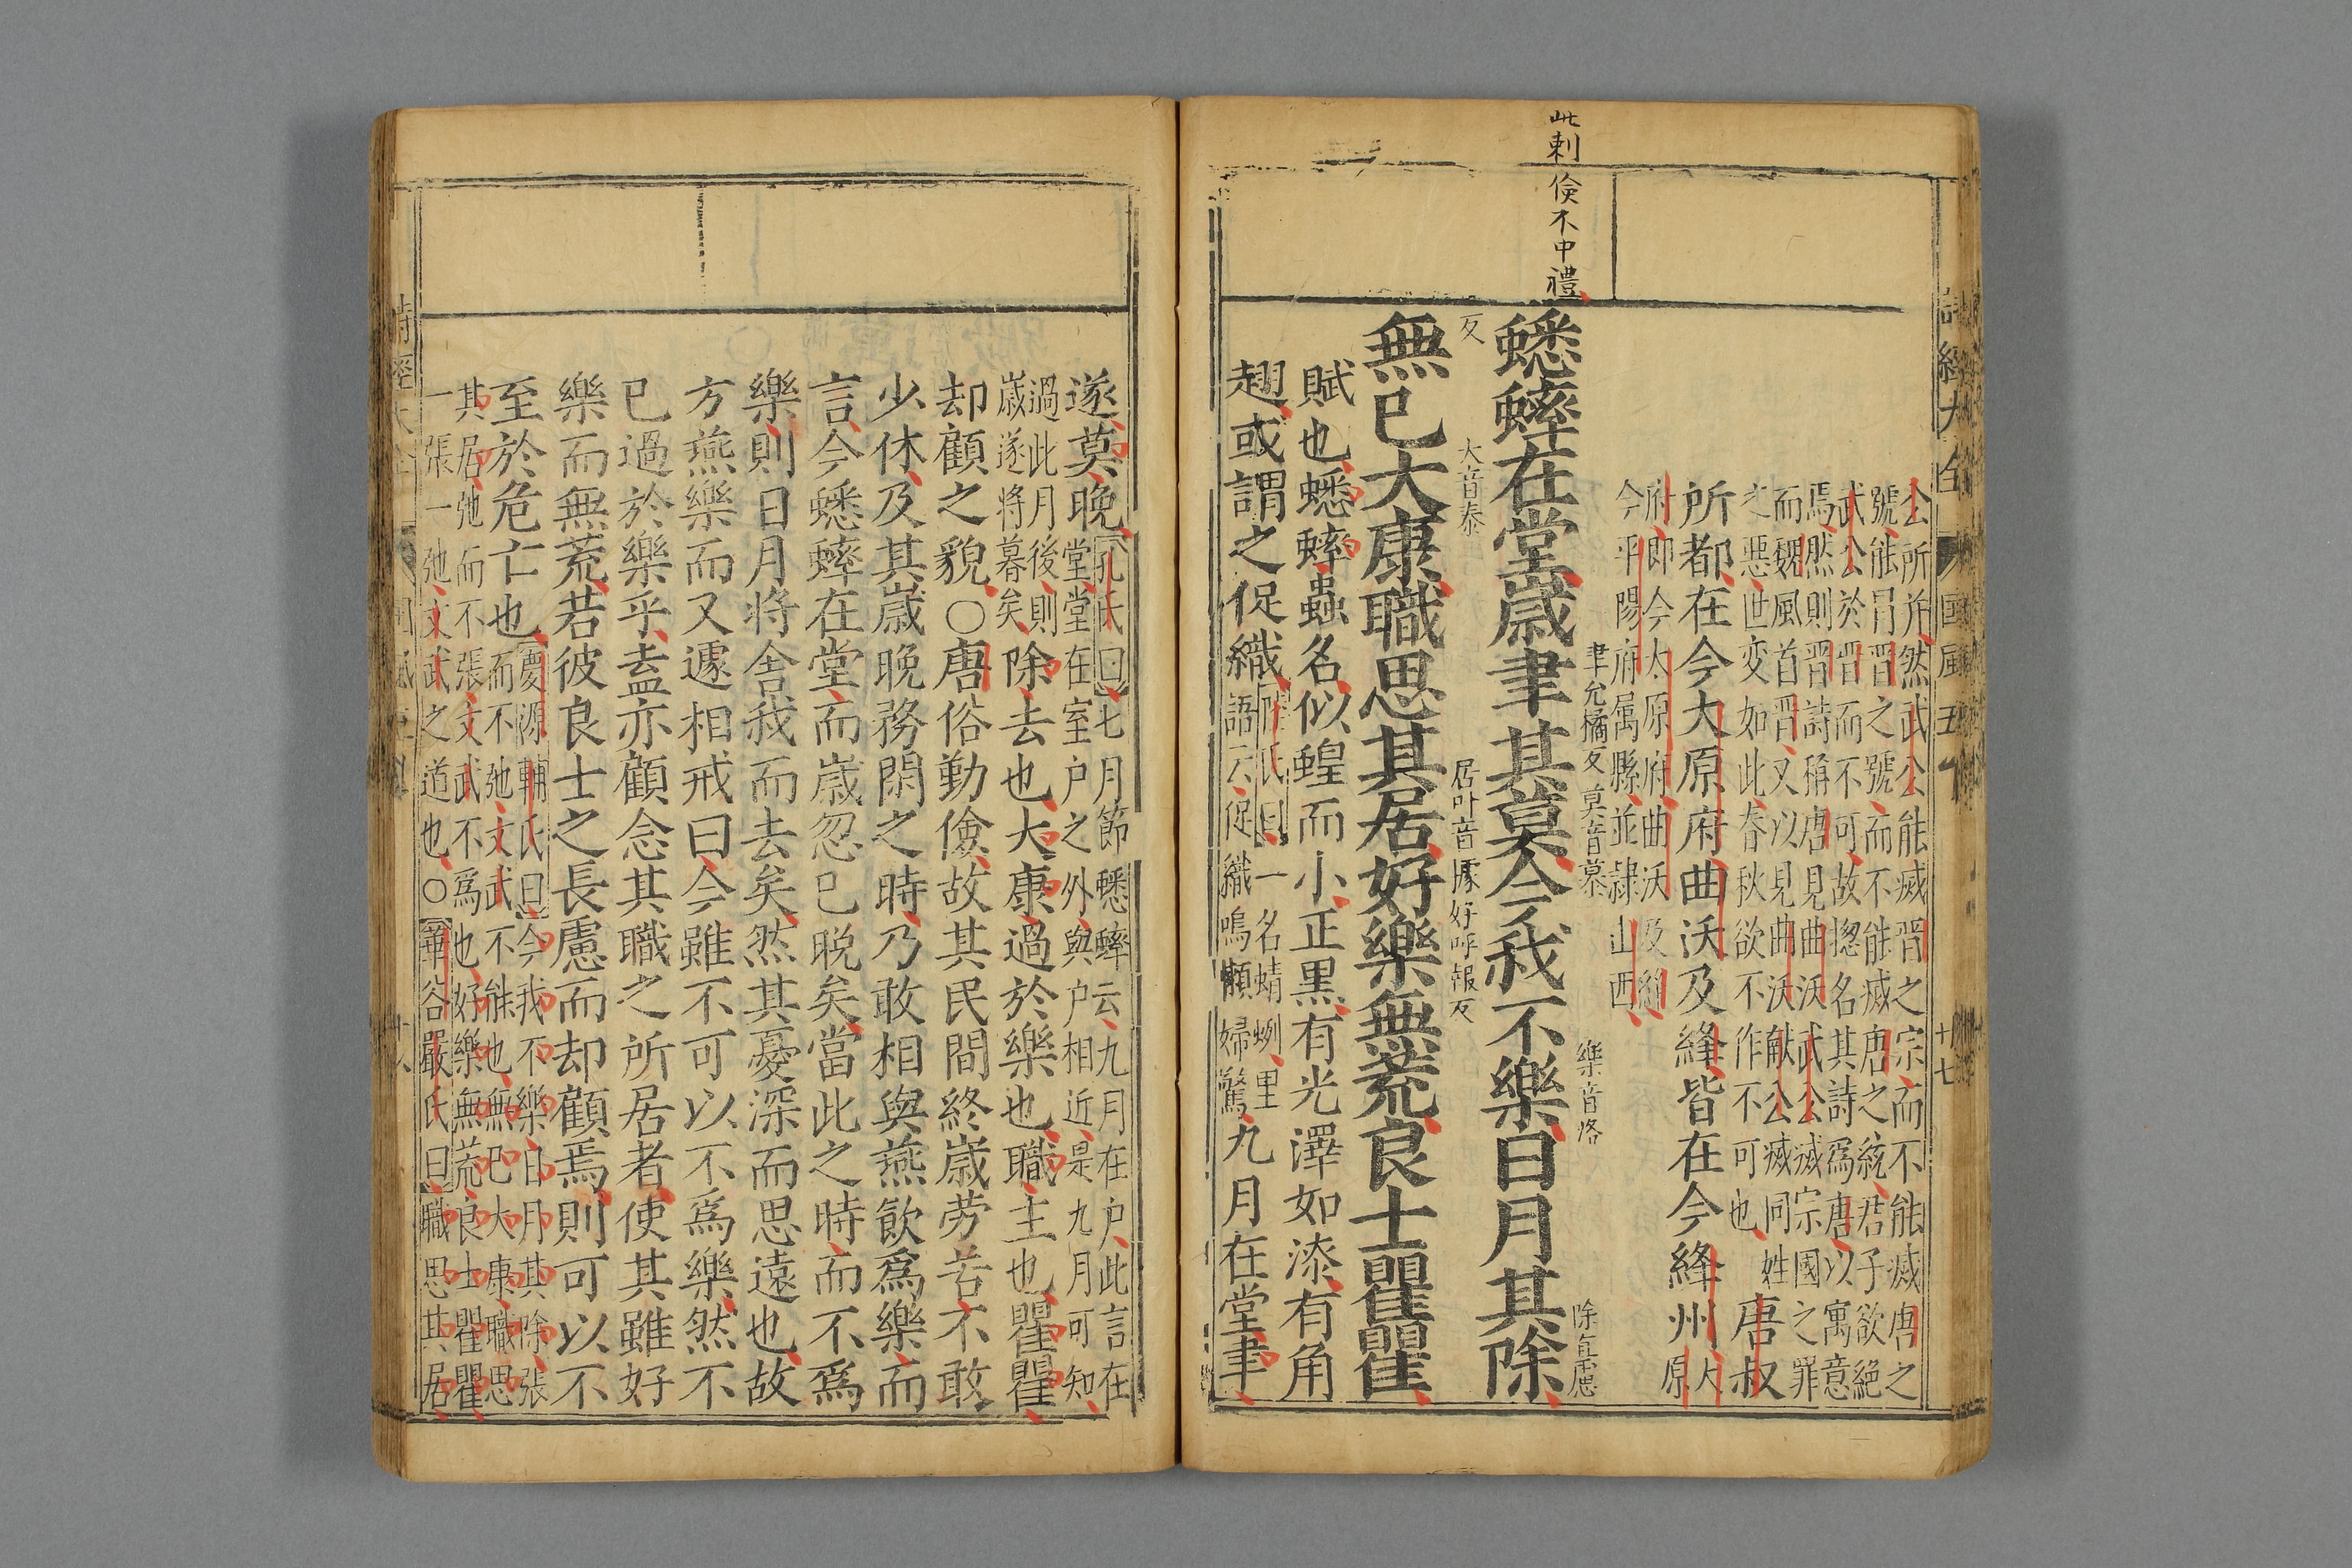 詩經大全 國風五 十七
公所并然武公能滅晉之宗而不能滅唐之
號能冒晉之號而不能滅唐之統君子欲絶
武公於晉而不可故揔名其詩爲唐以寓意
焉然則晉詩稱唐見曲沃武公滅宗國之罪
而魏風首晉又以見曲沃献公滅同姓
之惡世変如此春秋欲不作不可也
唐叔
所都在今大原府曲沃及絳皆在今絳州
大
原
府即今太原府曲沃及絳
今平陽府属縣並隷山西
此刺儉不中禮
蟋蟀在堂歲聿其莫今我不樂日月其除
聿允橘反 莫音慕 樂音洛 除直慮
反
無已大康職思其居好樂無荒良士瞿瞿
大音泰 居叶音據 好呼報反
賦也蟋蟀蟲名似蝗而小正黒有光澤如漆有角
翅或謂之促織
一名蜻蛚里
語云促織鳴懶婦驚
九月在堂聿
遂莫晚
孔氏曰七月節蟋蟀云九月在户此言在
堂堂在室户之外與户相近是九月可知
過此月後則
歲遂將暮矣
除去也大康過於樂也職主也瞿瞿
却顧之貌○唐俗勤儉故其民間終歲劳苦不敢
少休及其歲晚務閑之時乃敢相與燕飲爲樂而
言今蟋蟀在堂而歲忽已晚矣當此之時而不爲
樂則日月将舎我而去矣然其憂深而思遠也故
方燕樂而又遽相戒曰今雖不可以不爲樂然不
已過於樂乎盍亦顧念其職之所居者使其雖好
樂而無荒若彼良士之長慮而却顧焉則可以不
至於危亡也
慶源輔氏曰今我不樂日月其除張
而不弛文武不能也無已大康職思
其居弛而不張文武不爲也好樂無荒良士瞿瞿
一張一弛文武之道也○華谷嚴氏曰職思其居